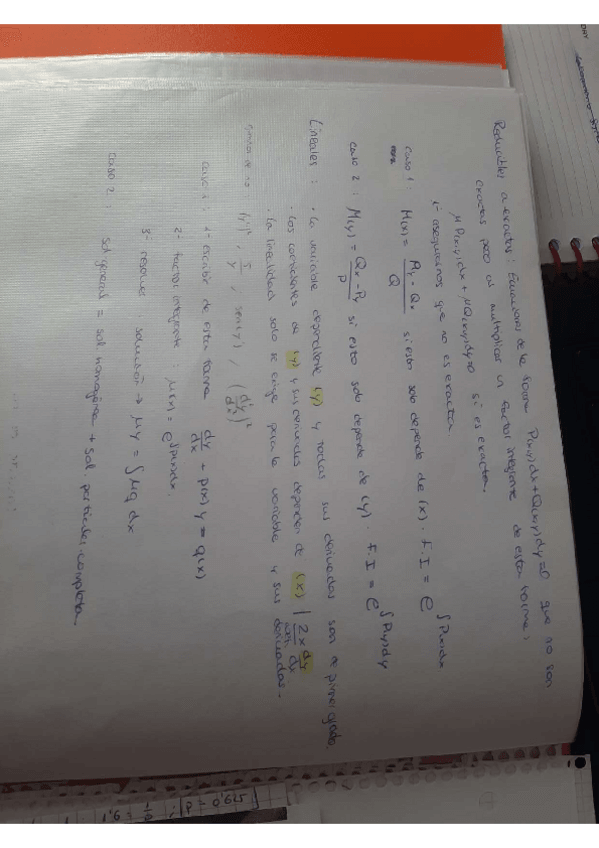 Reducibles a exactas: Ecuaciones de la forma P(x,y)dx+Q(x,y)dy=0 que no son
exactas pero al multiplicar un factor integrante de esta forma:
μP(x,y)dx+μQ(x,y)dy=0 si es exacta.
1- aseguramos que no es exacta.
caso 1: M(x) = Py - Qx / Q si esto solo depende de (x). F.I = e^∫P(x)dx
caso 2: M(y) = Qx - Py / P si esto solo depende de (y). F.I = e^∫P(y)dy
Lineales: · La variable dependiente (y) y todas sus derivadas son de primer grado.
· Los coeficientes de (y) y sus derivadas dependen de (x) | 2x dy/dx
· La linealidad solo se exige para la variable y sus derivadas.
(y')², 1/y, sen(y), (dy/dx)²
caso 1: 1- escribir de esta forma dy/dx + p(x)y = q(x)
2- factor integrante: μ(x) = e^∫p(x)dx.
3- resolver solución → μy = ∫μq dx
caso 2: sol general = sol homogénea + sol particular completa.
1,6 = 16/10
= 0,625